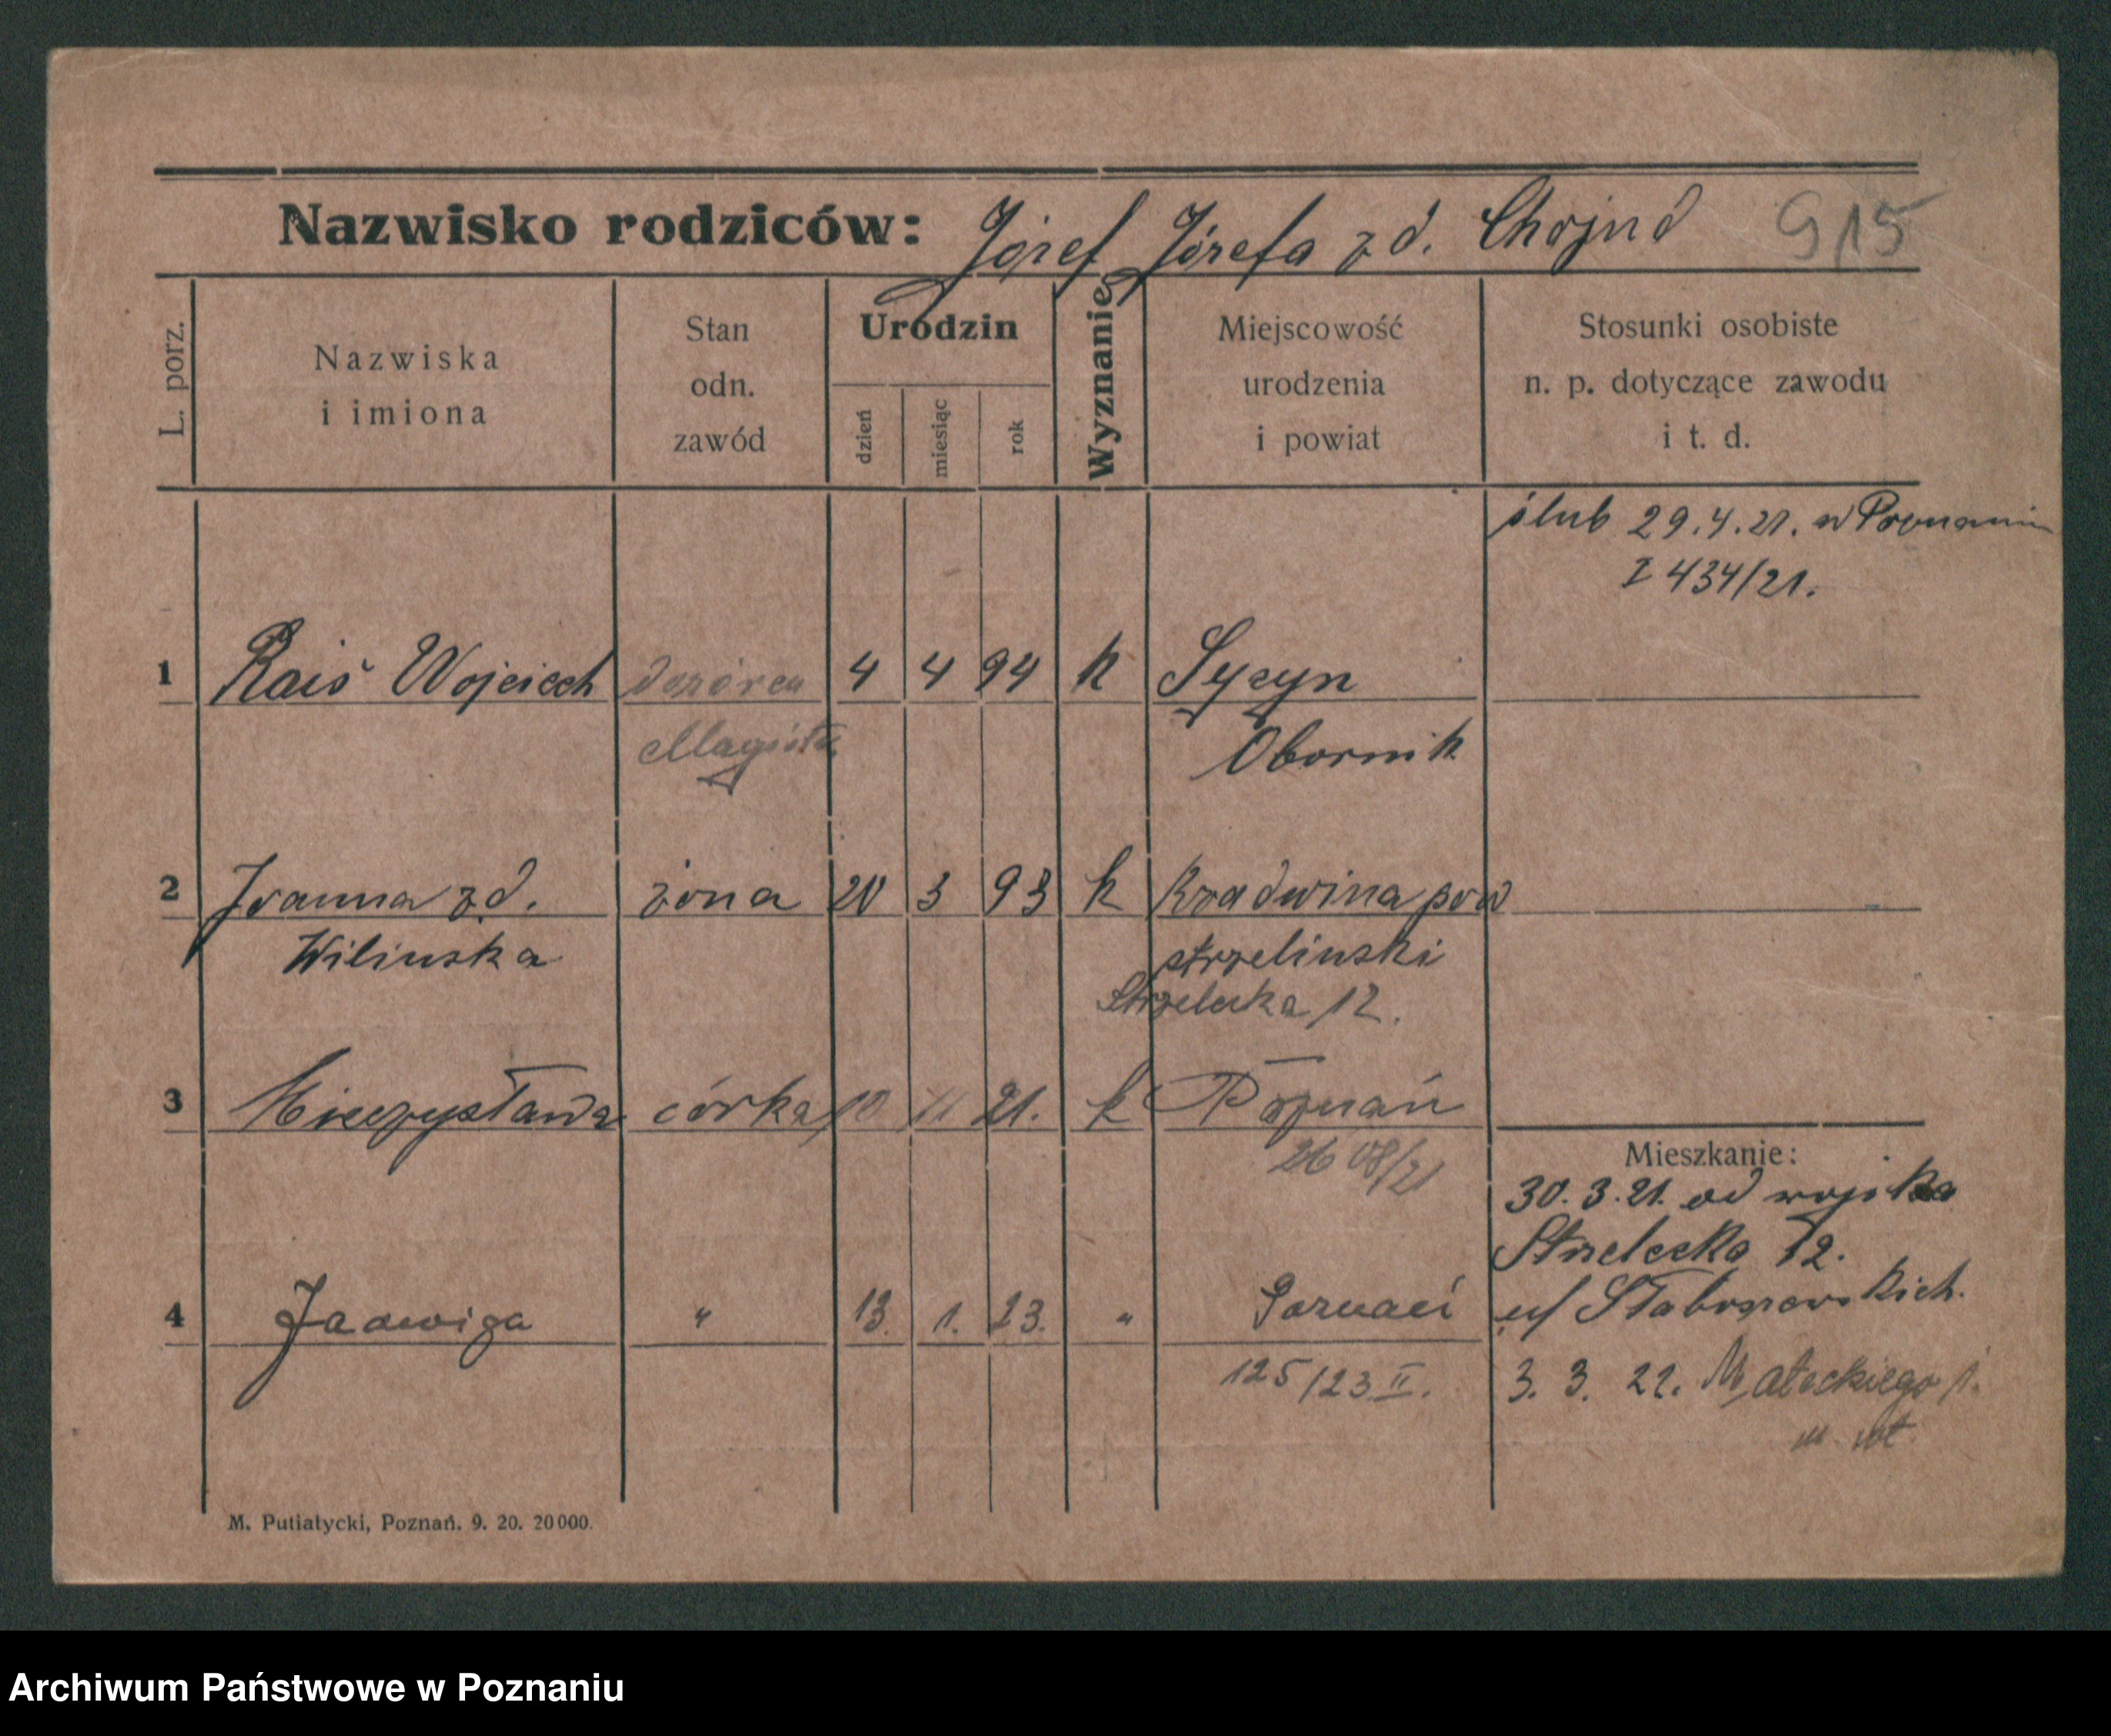 Nazwisko rodziców: Józef Józefa zd. Chojnd 915
L. porz.
Nazwiska
i imiona
Stan
odn.
zawód
Urodzin
dzień
miesiąc
rok
Wyznanie
Miejscowość
urodzenia
i powiat
Stosunki osobiste
n. p. dotyczące zawodu
i t. d.
ślub 29.4.21. w Poznaniu
I 434/21.
1 Raiś Wojciech dozórca 4 4 94 k Sycyn
Magistr. Obornik
2 Joanna zd. żona 20 3 93 k Kradwina pow
Wilinska strzelinski
Strzelecka 12.
3 Mieczysława córka 10 11 21. k Poznań
2608/21
Mieszkanie:
30.3.21. od wojska
Strzelecka 12.
4 Jadwiga " 13. 1. 23. " Poznań
u/ Słaboszewskich.
125/23 II.
3. 3. 22. Małeckiego 1.
M. Putiatycki, Poznań. 9. 20. 20000.
Archiwum Państwowe w Poznaniu